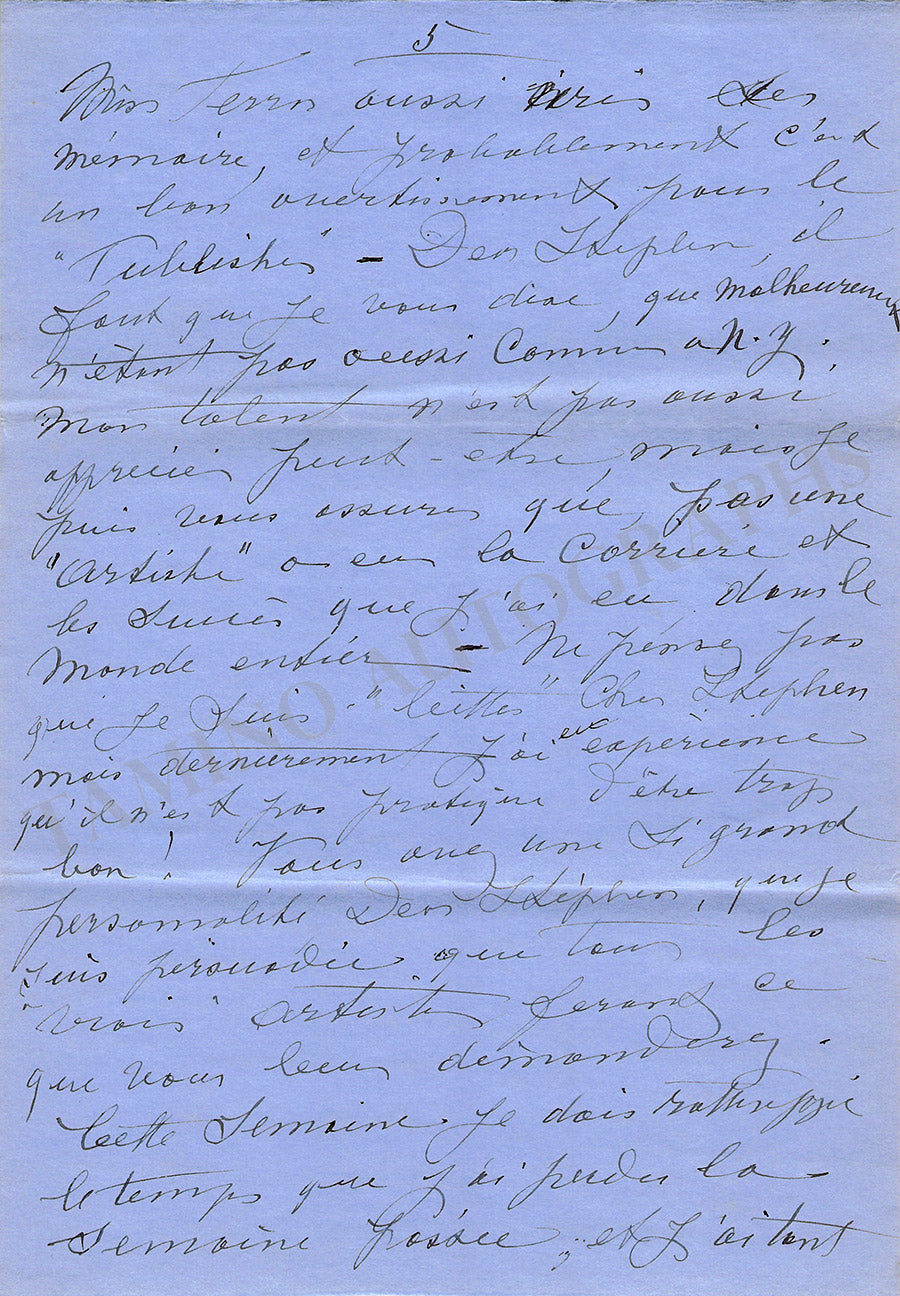 5
Miss Terris aussi écris des
mémoire, et probablement c'est
un bon avertissement pour le
"Publisher" - Dear Stephen, il
faut que je vous dise, que malheureux
n'étant pas aussi connu a N.Y.
mon talent n'est pas aussi
apprécier peut-etre, mais je
puis vous assurer que, pas une
"Artiste" a eu la Carrière et
les Succès que j'ai eu dans le
Monde entier - Ne pensez pas
que je suis - " " Cher Stephen
mais dernièrement j'ai eu expèrience
qu'il n'est pas pratique d'être trop
bon! Vous avez une si grand
personnalité Dear Stéphen, que je
suis persuadée que tous les
"vrais" artistes feront ce
que vous leur démanderez.
Cette Semaine je dois rattrapper
le temps que j'ai perdu la
Semaine passée, et j'ai tant
TAMINO AUTOGRAPHS